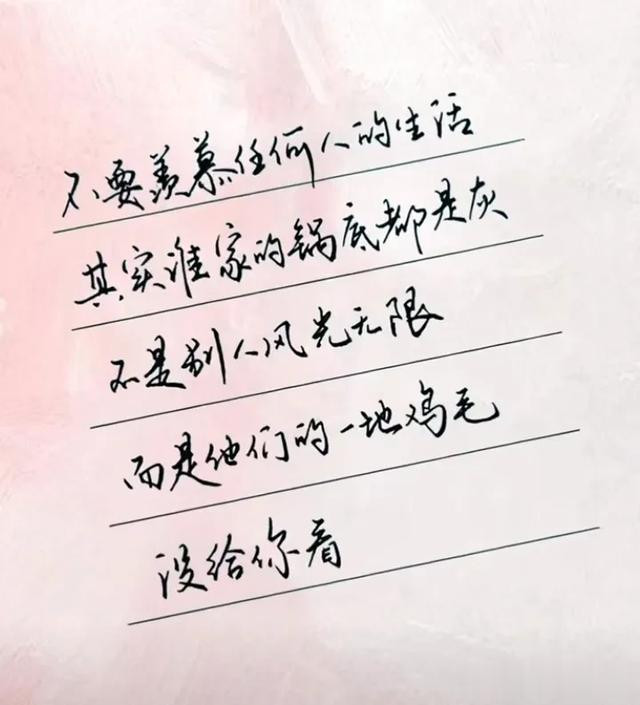 不要羡慕任何人的生活
其实谁家的锅底都是灰
不是别人风光无限
而是他们的一地鸡毛
没给你看